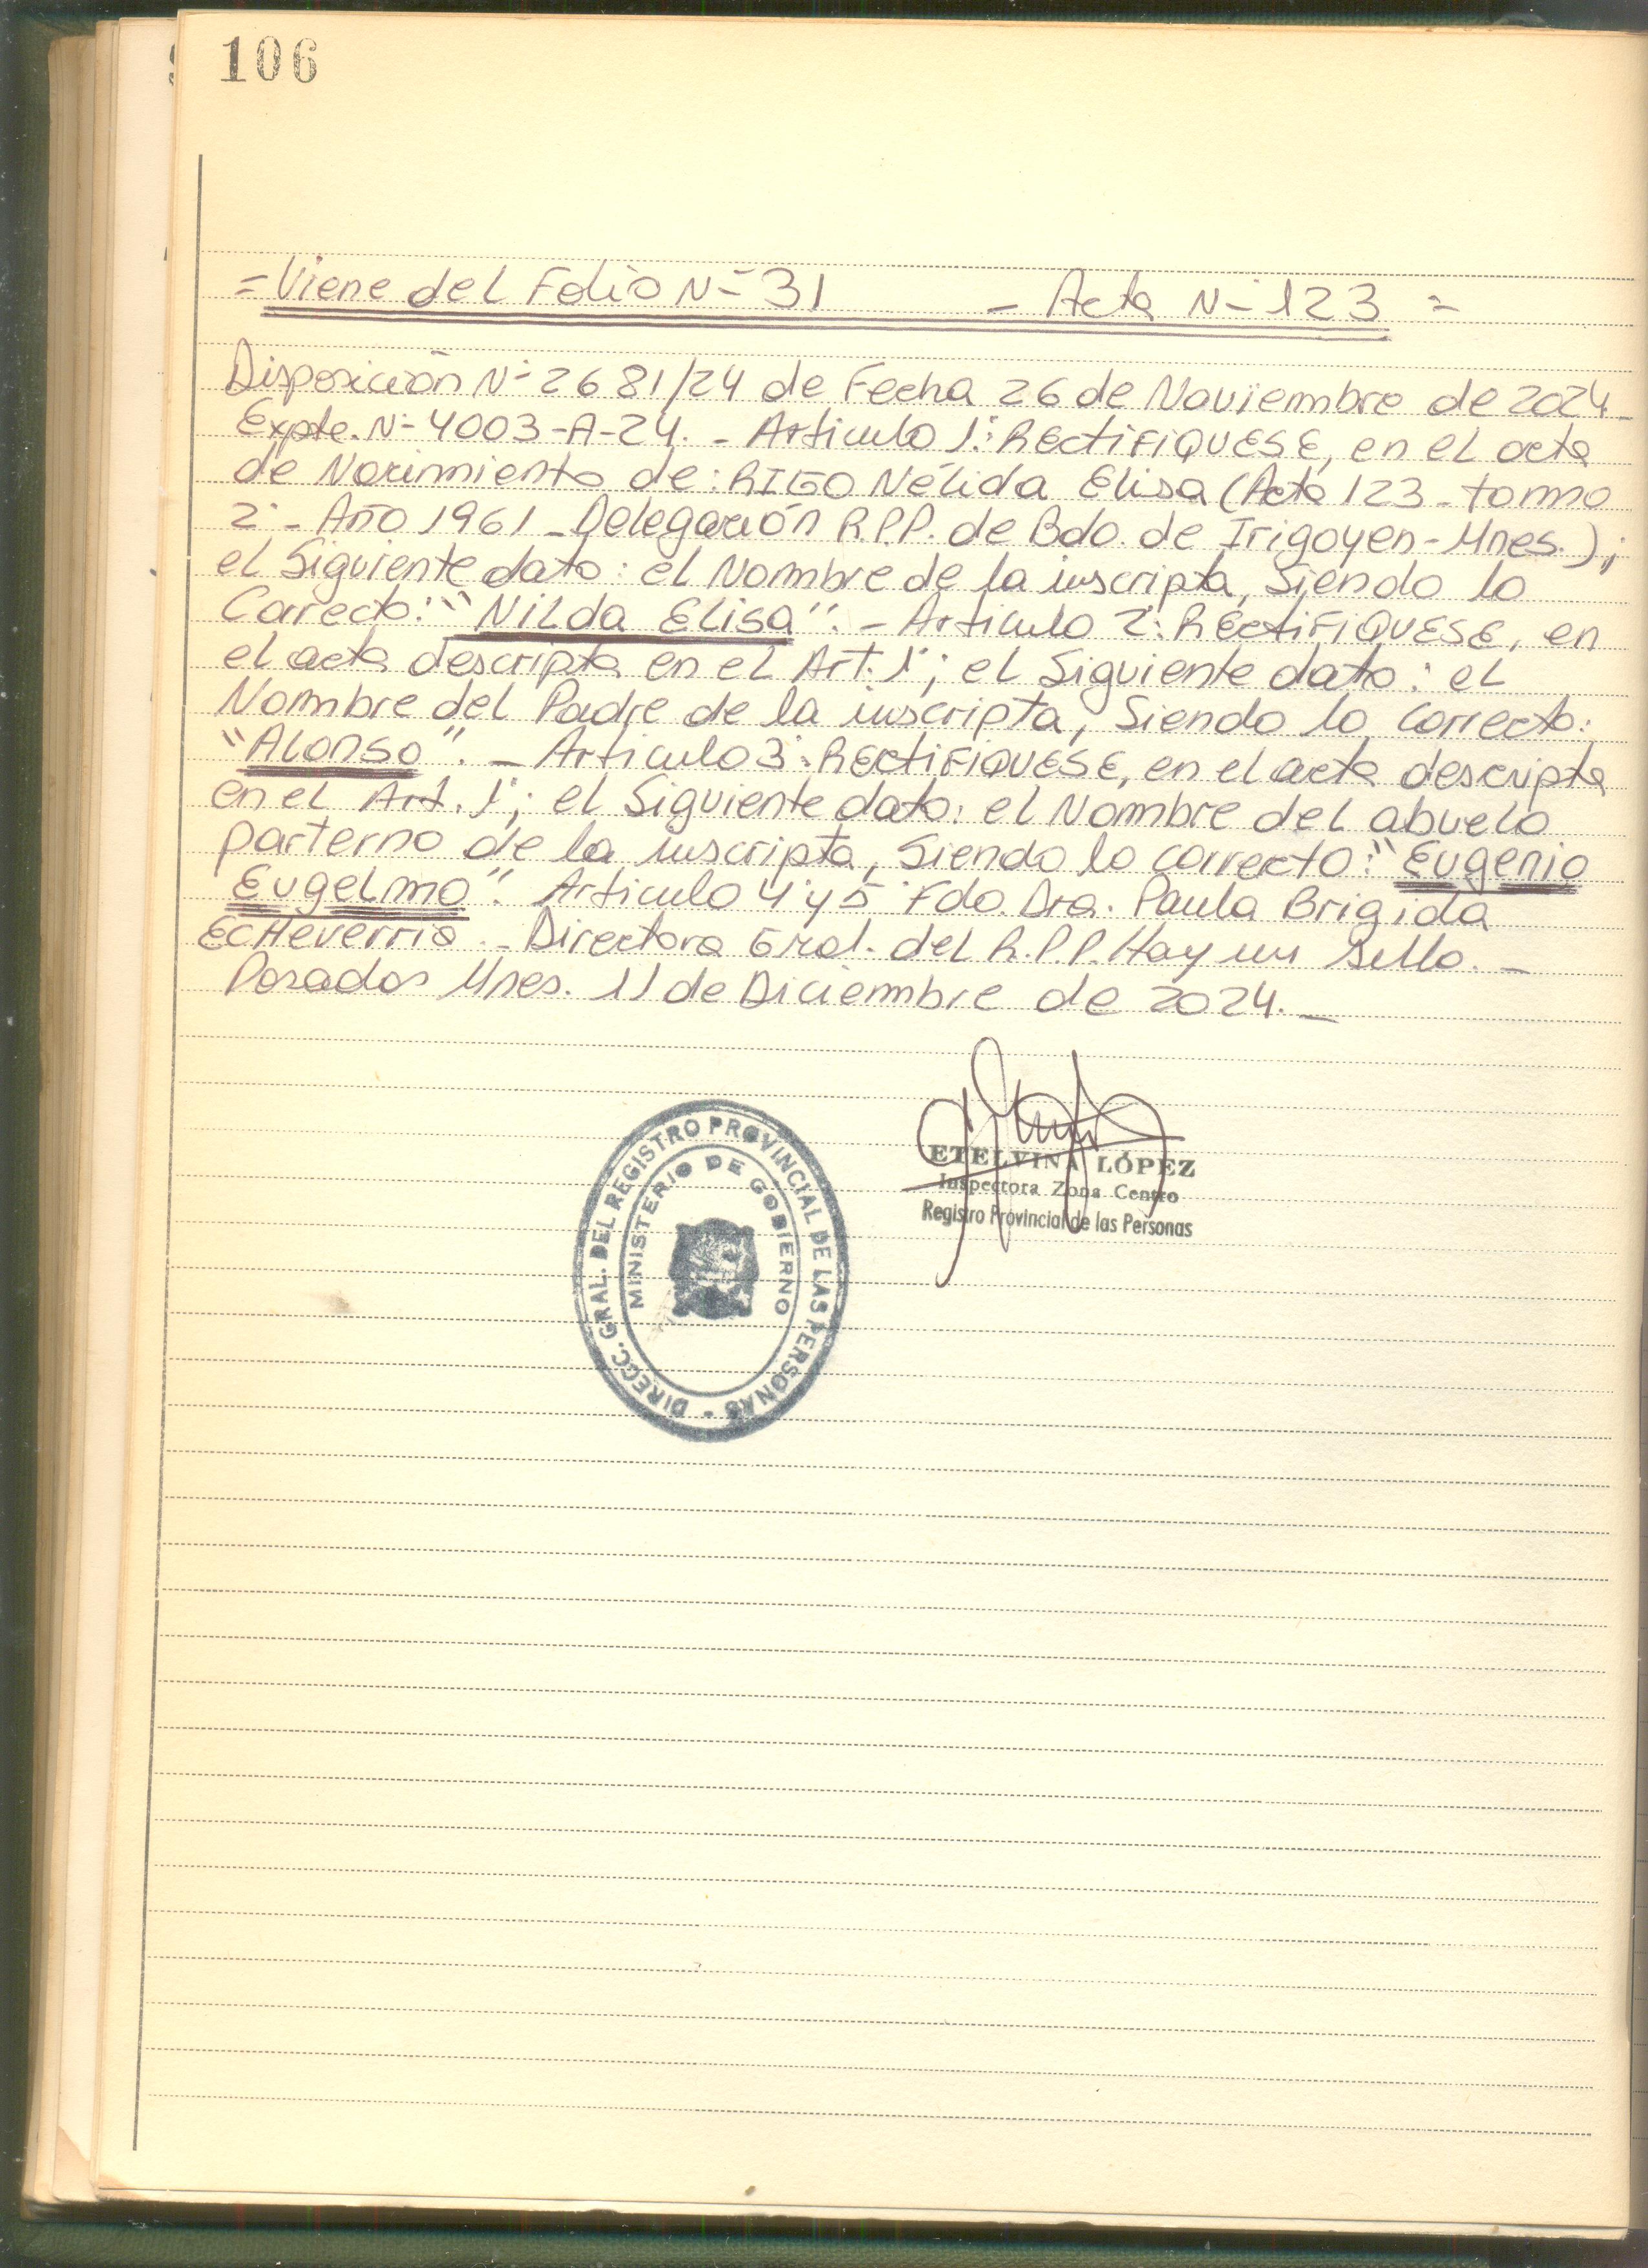 106
= Viene del Folio Nº 31 - Acta Nº 123 =
Disposición Nº 2681/24 de Fecha 26 de Noviembre de 2024_
Expte. Nº 4003-A-24. - Articulo 1º: RECTIFIQUESE, en el acta
de Nacimiento de: RIGO Nélida Elisa (Acta 123 - tomo
2º - Año 1961 - Delegación R.P.P. de Bdo. de Irigoyen - Mnes.);
el Siguiente dato: el Nombre de la inscripta, Siendo lo
Correcto: "Nilda Elisa". - Articulo 2º: RECTIFIQUESE, en
el acta descripta en el Art. 1º; el Siguiente dato: el
Nombre del Padre de la inscripta, Siendo lo correcto:
"Alonso". - Articulo 3º: RECTIFIQUESE, en el acta descripta
en el Art. 1º; el Siguiente dato: el Nombre del abuelo
parterno de la inscripta, Siendo lo correcto: "Eugenio
Eugelmo". Articulo 4º y 5º Fdo. Dra. Paula Brigida
Echeverria - Directora Gral. del R.P.P. Hay un Sello. -
Posadas Mnes. 11 de Diciembre de 2024. -
ETELVINA LÓPEZ
Inspectora Zona Centro
Registro Provincial de las Personas
DIRECC. GRAL. DEL REGISTRO PROVINCIAL DE LAS PERSONAS -
MINISTERIO DE GOBIERNO